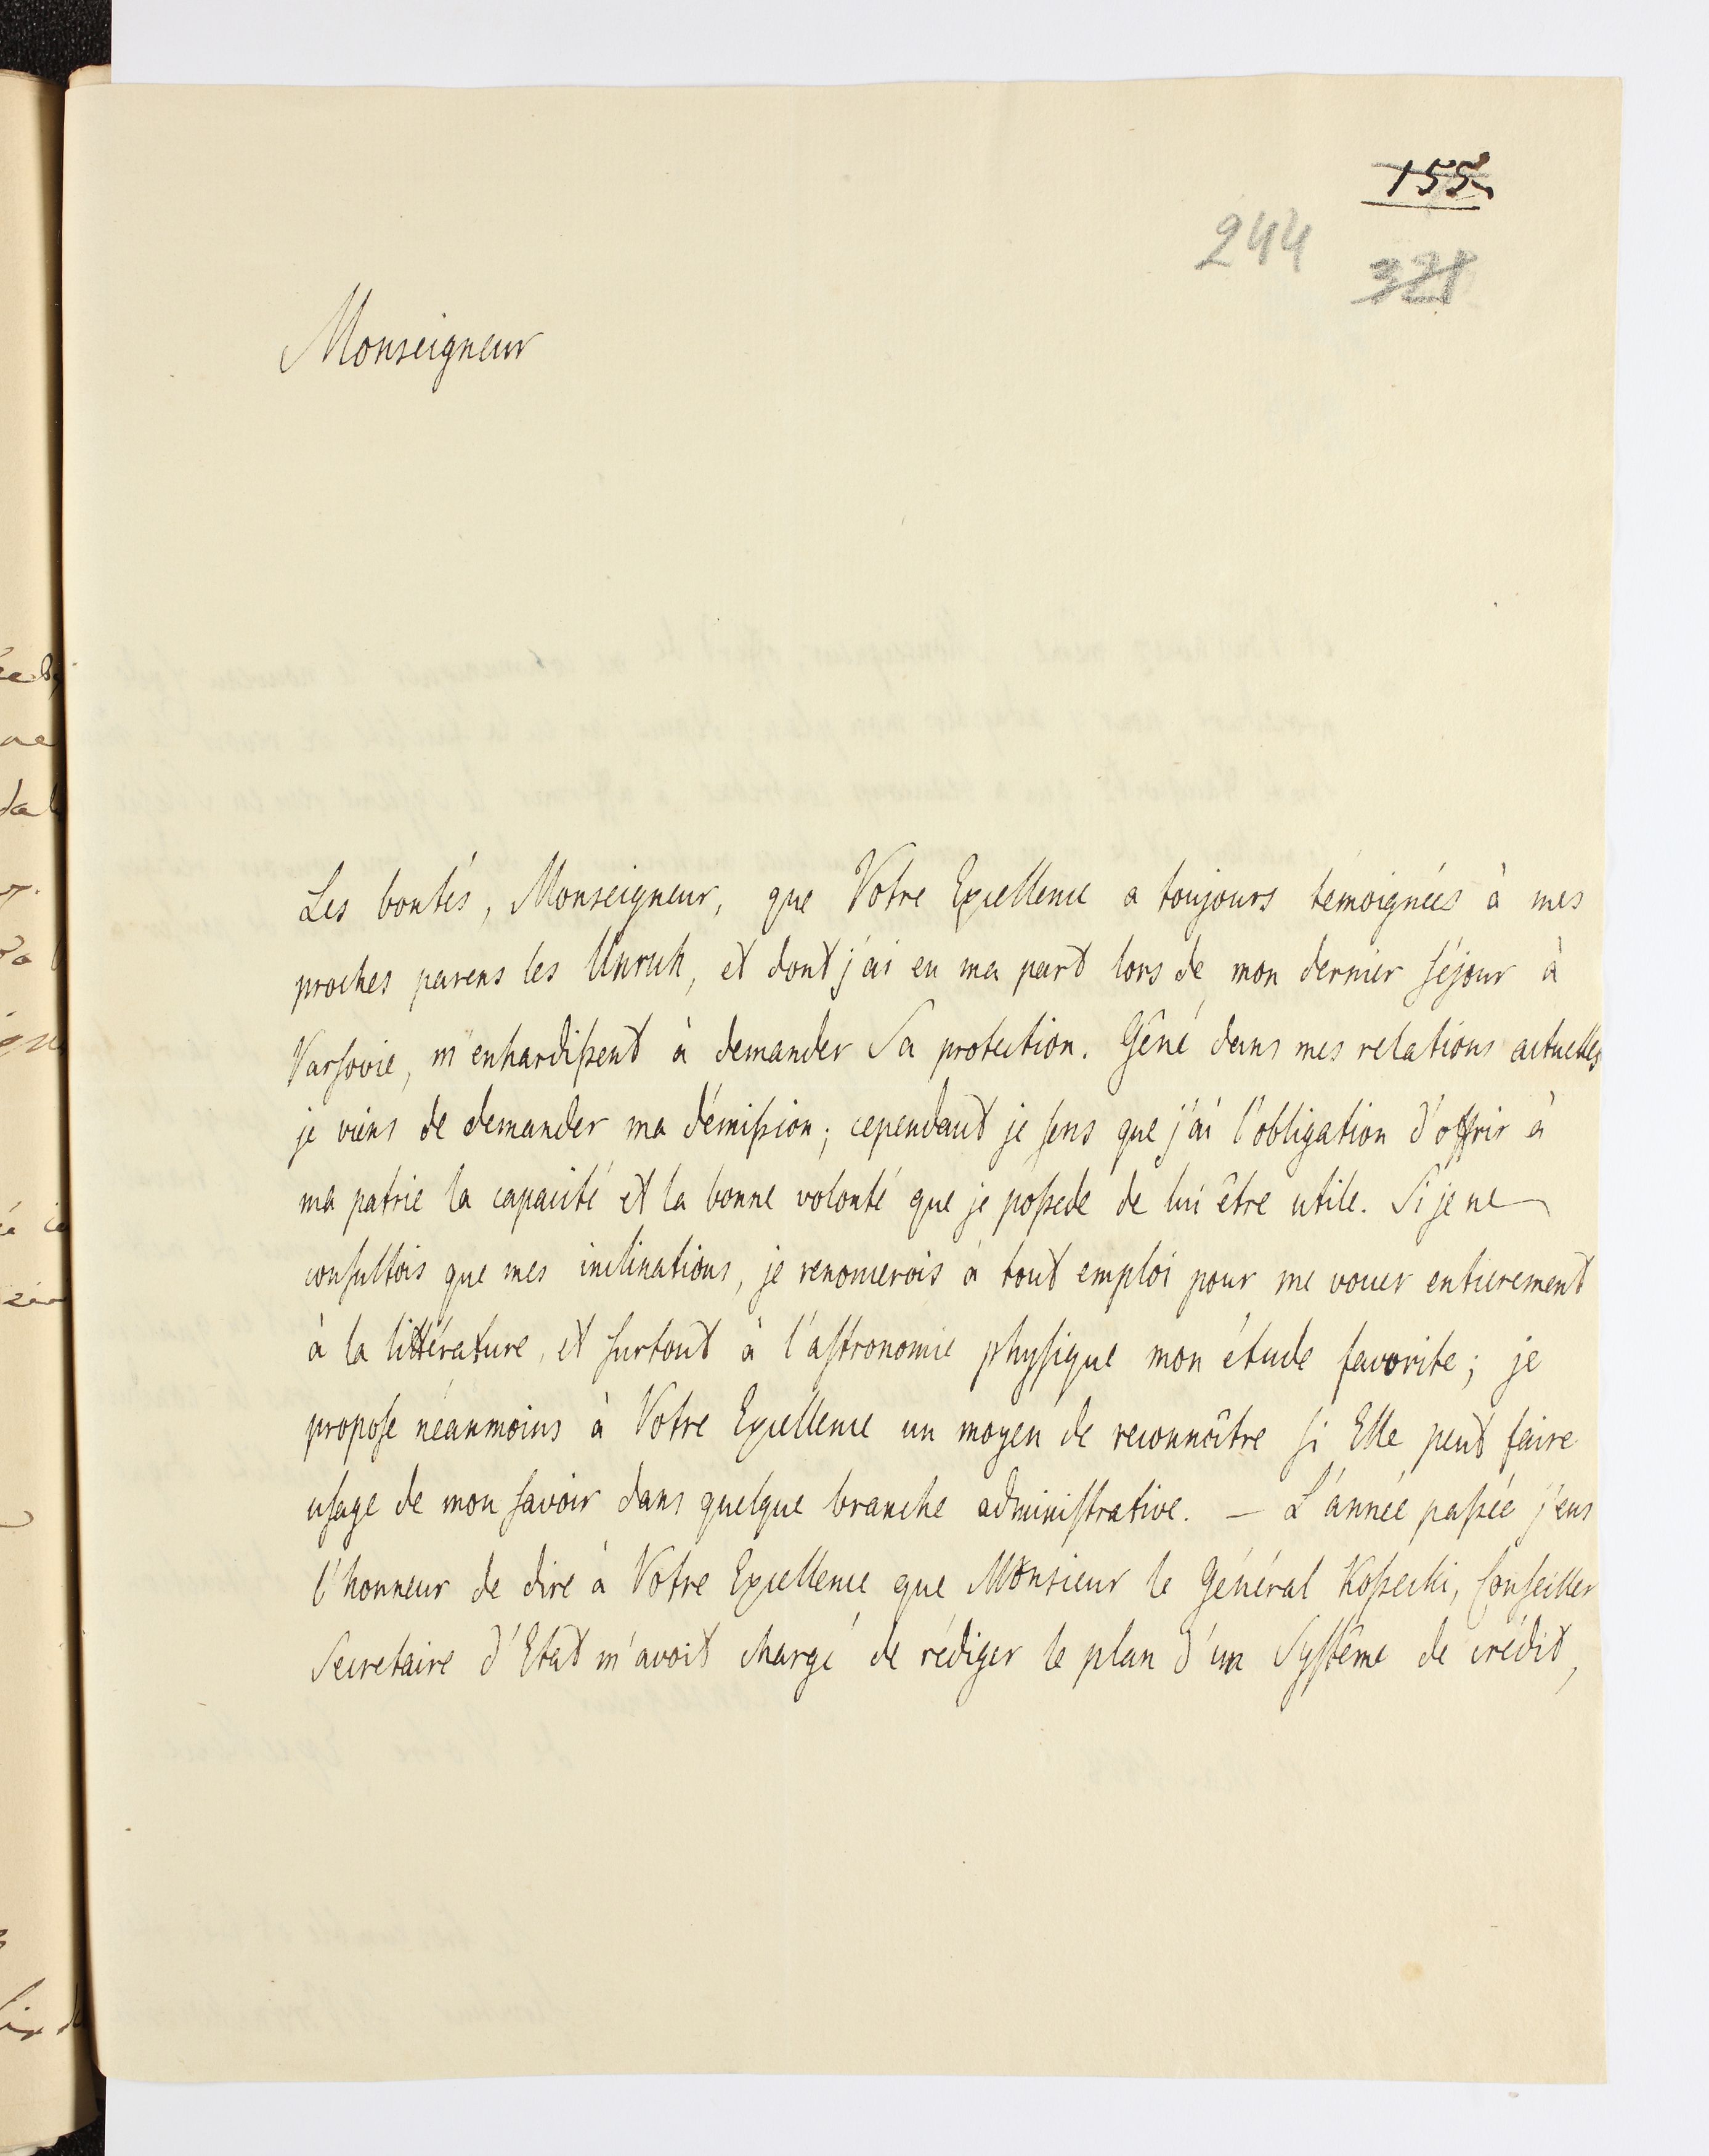 155
244
321
Monseigneur
Les bontés, Monseigneur, que Votre Excellence a toujours témoignées à mes
proches parens les Unruh, et dont j'ai eu ma part lors de mon dernier séjour à
Varsovie, m'enhardissent à demander Sa protection. Gêné dans mes relations actuelles
je viens de demander ma démission; cependant je sens que j'ai l'obligation d'offrir à
ma patrie la capacité et la bonne volonté que je possede de lui être utile. Si je ne
consultois que mes inclinations, je renoncerois à tout emploi pour me vouer entierement
à la littérature, et surtout à l'astronomie physique mon étude favorite; je
propose néanmoins à Votre Excellence un moyen de reconnoître si Elle peut faire
usage de mon savoir dans quelque branche administrative. — L'année passée j'eus
l'honneur de dire à Votre Excellence que Monsieur le Général Kossecki, Conseiller
Secretaire d'Etat m'avoit chargé de rédiger le plan d'un Systême de crédit,